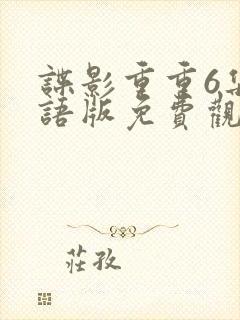 諜影重重6集
語版免費觀
莊孜